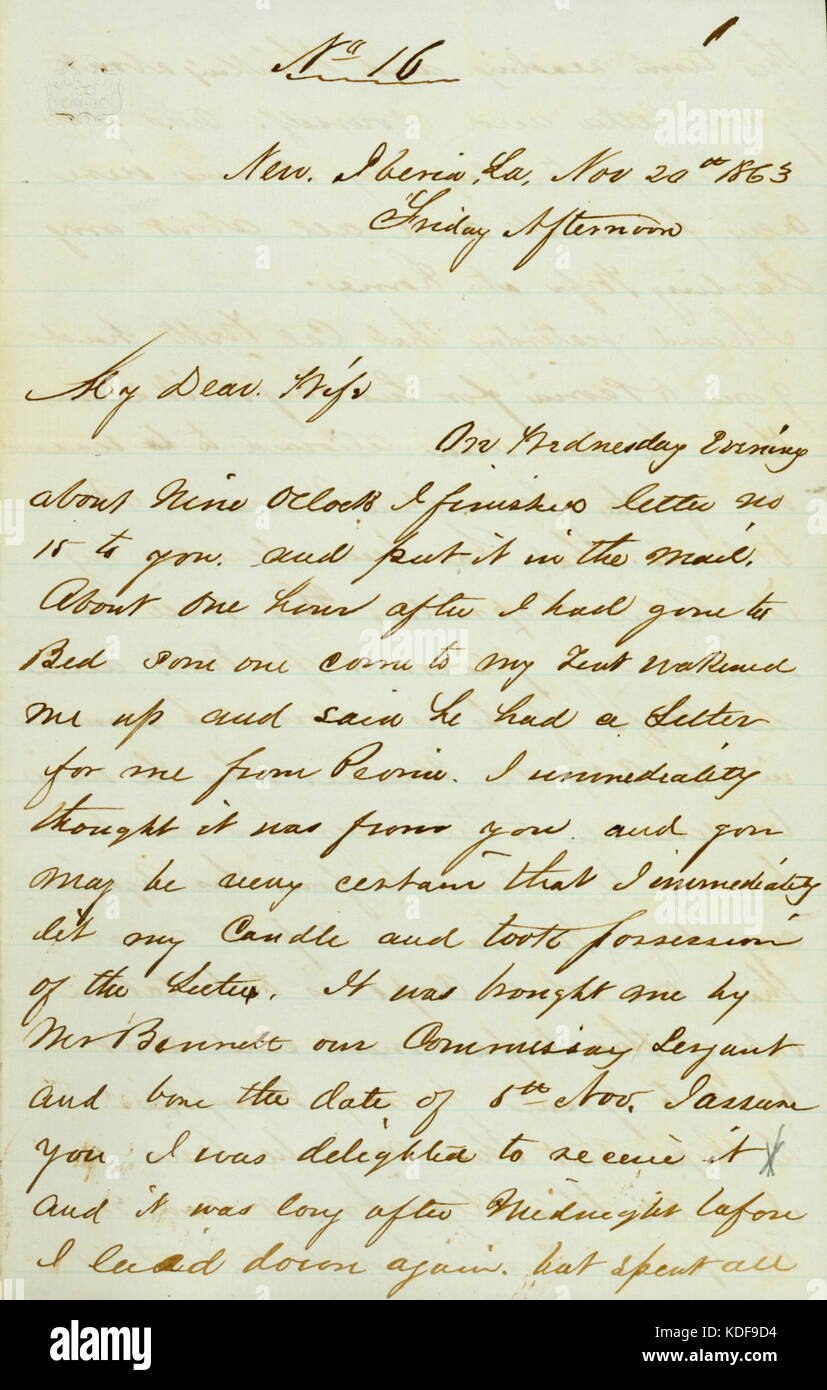 No 16
New. Iberia, La, Nov 20th 1863
Friday Afternoon
My Dear. Wife
On Wednesday Evening
about Nine Oclock I finished letter no
15 to you. and put it in the mail.
About One hour after I had gone to
Bed some one come to my Tent wakened
me up and said he had a Letter
for me from Peoria. I immediatity
thought it was from you. and you
may be very certain that I immediatity
lit my Candle and took possession
of the Letter. It was brought me by
Mr Bennett our Commissay Serjant
and bore the date of 5th Nov. I assure
you I was delighted to receive it
and it was long after Midneight before
I laid down again. but spent all
alamy
Image ID: KDF9D4
www.alamy.com